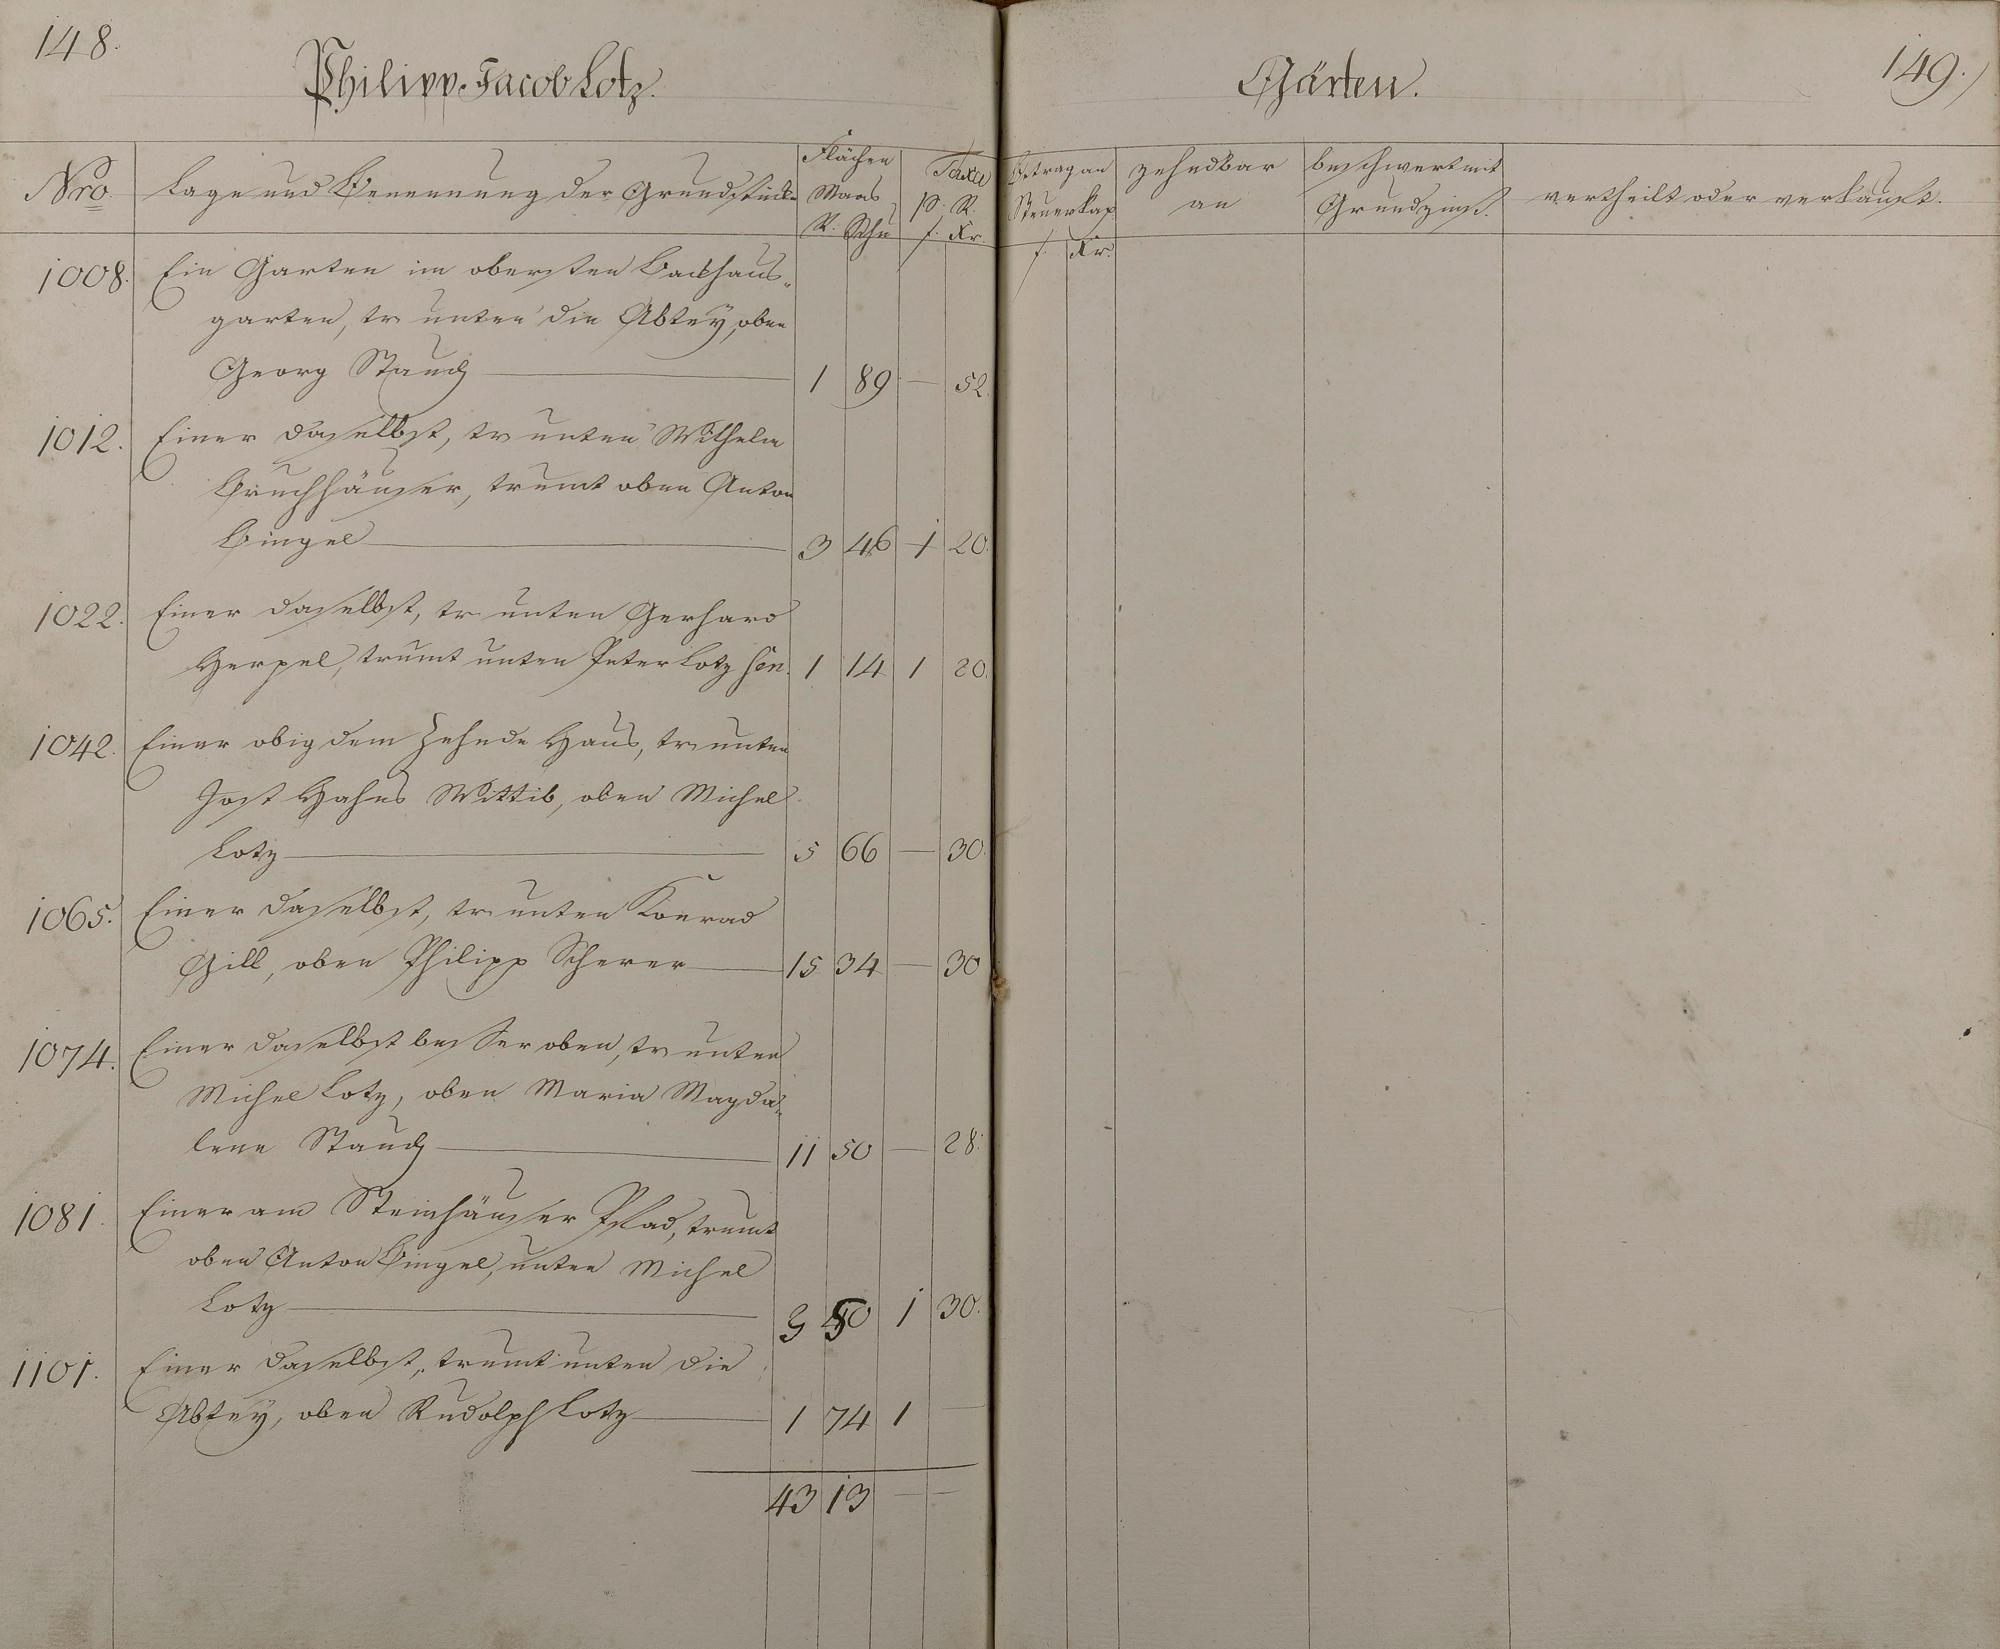 148.
Philipp Jacob Lotz.
Nro
Lage und Benennung der Grundstücke
Flächen
Maas
R. Schu
Taxa
p. R.
f. Kr.
1008. Ein Garten im obersten Backhaus-
garten, tr unten die Abtey, oben
Georg Staud 1 89 — 52.
1012. Einer daselbst, tr unten Wilhelm
Bruchhäuser, trumt oben Anton
Bingel 3 46 1 20.
1022. Einer daselbst, tr unten Gerhard
Herpel, trumt unten Peter Lotz sen. 1 14 1 20.
1042. Einer obig dem Zehnde Haus, tr unten
Jost Hahns Wittib, oben Michel
Lotz 5 66 — 30.
1065. Einer daselbst, tr unten Konrad
Gill, oben Philipp Scherer 15 34 — 30
1074. Einer daselbst besser oben, tr unten
Michel Lotz, oben Maria Magda-
lena Staud 11 50 — 28.
1081. Einer am Steinhäuser Pfad, trumt
oben Anton Bingel, unten Michel
Lotz 50 1 30.
1101. Einer daselbst, trumt unten die
Abtey, oben Rudolph Lotz 1 74 1 —
43 13 — —
Gärten.
149.
Betrag an
Steuerkap
f. Kr.
zehndbar
an
beschwert mit
Grundzinß.
vertheilt oder verkauft.